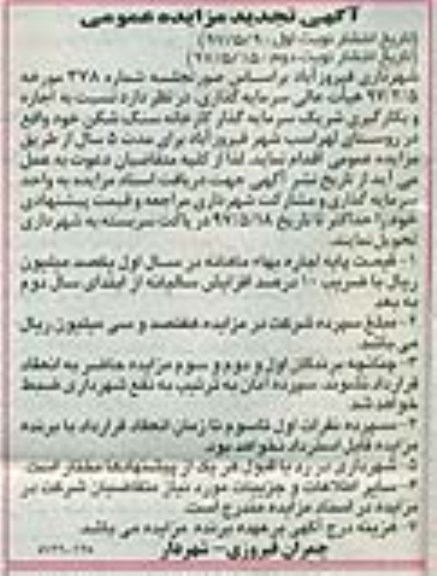 آگهی تجدید مزایده عمومی
(تاریخ انتشار نوبت اول: ۹۷/۵/۹)
(تاریخ انتشار نوبت دوم: ۹۷/۵/۱۵)
شهرداری فیروزآباد براساس صورتجلسه شماره ۳۷۸ مورخه
۹۷/۲/۵ هیأت عالی سرمایه گذاری، در نظر دارد نسبت به اجاره
و بکارگیری شریک سرمایه گذار کارخانه سنگ شکن خود واقع
در روستای لهراسب شهر فیروزآباد برای مدت ۵ سال از طریق
مزایده عمومی اقدام نماید. لذا از کلیه متقاضیان دعوت به عمل
می آید از تاریخ نشر آگهی جهت دریافت اسناد مزایده به واحد
سرمایه گذاری و مشارکت شهرداری مراجعه و قیمت پیشنهادی
خود را حداکثر تا تاریخ ۹۷/۵/۱۸ در پاکت سربسته به شهرداری
تحویل نمایند.
۱- قیمت پایه اجاره بهاء ماهانه در سال اول یکصد میلیون
ریال با ضریب ۱۰ درصد افزایش سالیانه از ابتدای سال دوم
به بعد
۲- مبلغ سپرده شرکت در مزایده هفتصد و سی میلیون ریال
می باشد.
۳- چنانچه برندگان اول و دوم و سوم مزایده حاضر به انعقاد
قرارداد نشوند، سپرده آنان به ترتیب به نفع شهرداری ضبط
خواهد شد.
۴- سپرده نفرات اول تا سوم تا زمان انعقاد قرارداد با برنده
مزایده قابل استرداد نخواهد بود.
۵- شهرداری در رد یا قبول هر یک از پیشنهادها مختار است.
۶- سایر اطلاعات و جزییات مورد نیاز متقاضیان شرکت در
مزایده در اسناد مزایده مندرج است.
۷- هزینه درج آگهی برعهده برنده مزایده می باشد.
چمران فیروزی- شهردار